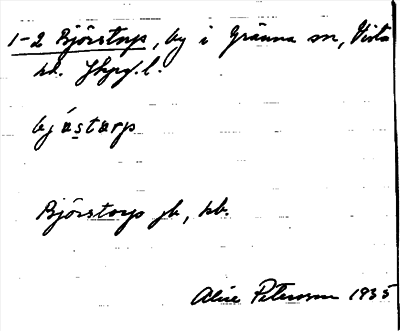 1-2 Björstorp, by i Gränna sn, Vista
hd. Jkpg. l.
bjöstarp
Björstorps jb, kb.
Alice Petersson 1935